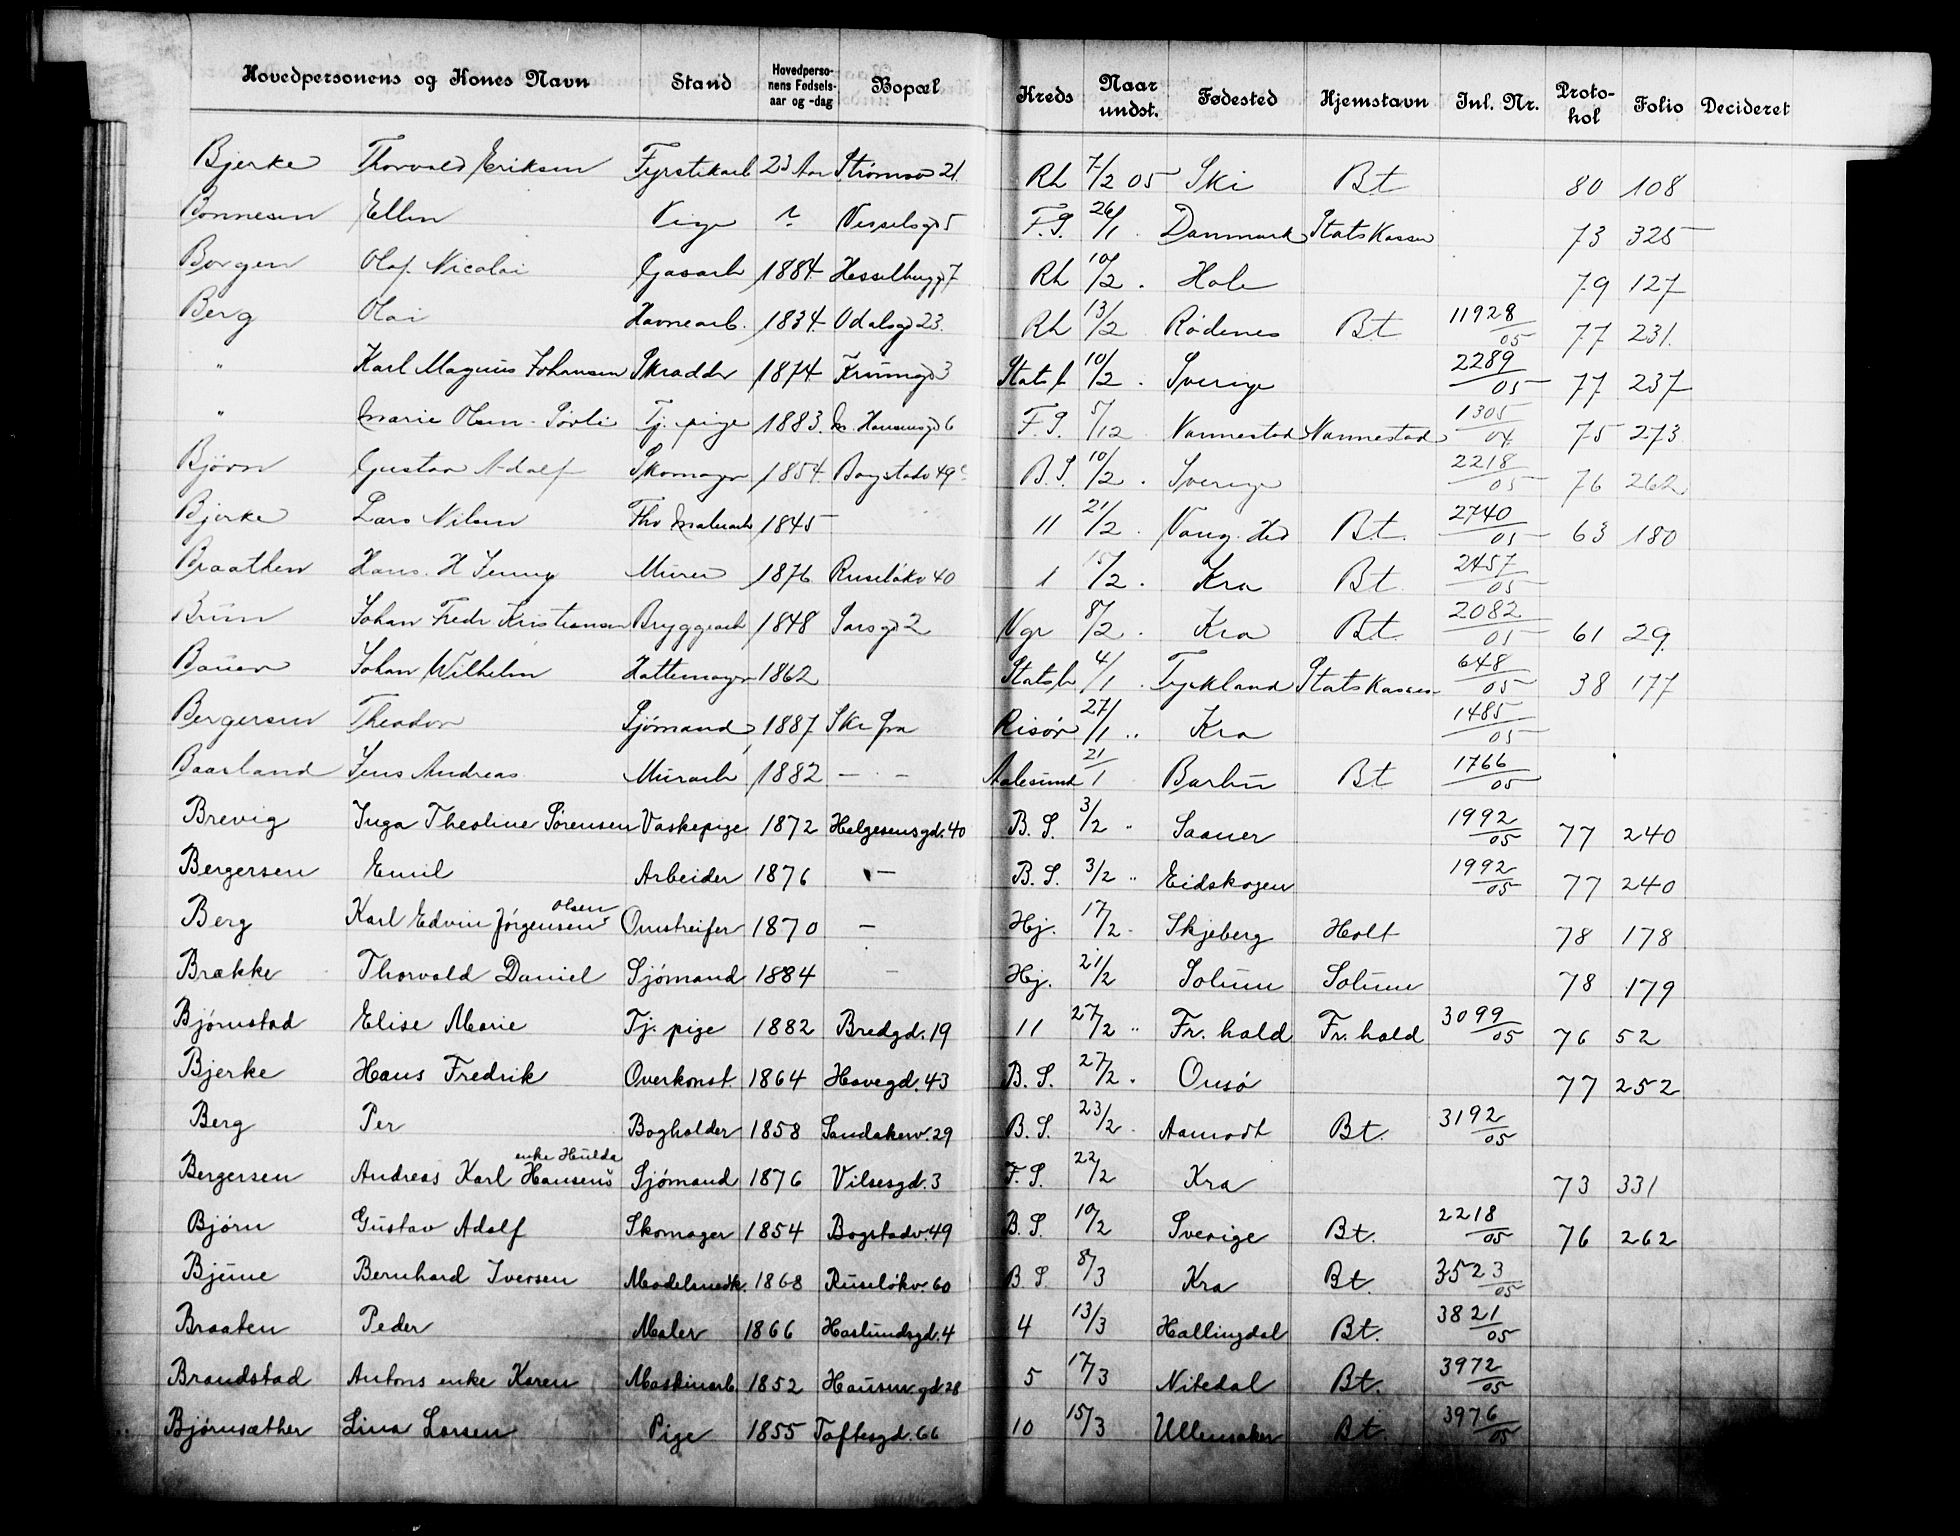 Hovedpersonens og Kones Navn Stand Hovedpersonens Fødselsaar og -dag Bopæl Kreds Naar undst. Fødested Hjemstavn Inl. Nr. Protokol Folio Decideret
Bjerke Thorvald Eriksen Fyrstikarb 23 Aar Strømsv 21. Rh 7/2 05 Ski Bt 80 108
Bonnesen Ellen Pige ? Vesselsgd 5 F.S. 26/1 . Danmark Statskassen 73 325
Borgen Olaf Nicolai Gasarb 1884 Hesselbergg 7 Rh 10/2 . Hole 79 127
Berg Olai Havnearb. 1834 Odalsgd 23. Rh 13/2 Rødenes Bt 11928/05 77 231.
" Karl Magnus Johansen Skradder 1874 Krumgd 3 Stats f 10/2 . Sverige 2289/05 77 237
" Marie Olsen Tj. pige 1883. M. Hansensgd 6 F.S. 5/12 Nannestad Nannestad 1305/04 75 273
Bjørn Gustav Adolf Skomager 1854 Bogstadv 49 B.S. 10/2 . Sverige 2218/05 76 262
Bjerke Lars Nilsen Malerarb 1845 11 21/2 . Vang. Hed Bt. 2740/05 63 180
Braathen Hans. H Jenny Murer 1876 Ruseløkv 40 1 15/2 . Kra Bt 2457/05
Brun Johan Fredr Kristiansen Bryggearb 1848 Larsgd 2 Vgr 8/2 . Kra Bt. 2082/05 61 29.
Bauer Johan Wilhelm Hattemager 1862 Stats f 4/1 . Tyskland Statskassen 648/05 38 177
Bergersen Theodor Sjømand 1887 Ski fra Risør 27/1 " Kra 1485/05
Baarland Jens Andreas Murarb 1882 — — Aalesund 21/1 Barbu Bt 1766/05
Brevig Inga Theoline Sørensen Vaskepige 1872 Helgesensgd. 40 B.S. 3/2 " Saaner 1992/05 77 240
Bergersen Emil Arbeider 1876 — B.S. 3/2 " Eidskogen 1992/05 77 240
Berg Karl Edvin Jørgensen Olsen Omstreifer 1870 — Hj. 17/2 . Skjeberg Holt 78 178
Brække Thorvald Daniel Sjømand 1884 — Hj. 21/2 Solum Solum 78 179
Bjørnstad Elise Marie Tj. pige 1882 Bredgd. 19 11 27/2 " Fr. hald Fr. hald 3099/05 76 52
Bjerke Hans Fredrik Overkonst. 1864 Havegd. 43 B.S. 27/2 . Onsø 77 252
Berg Per Bogholder 1858 Sandakerv. 29 B.S. 23/2 . Aamodt Bt. 3192/05
Bergersen Andreas Karl Hansens enke Hulda Sjømand 1876 Vilsesgd. 3 F.S. 22/2 Kra 73 331
Bjørn Gustav Adolf Skomager 1854 Bogstadv. 49 B.S. 10/2 Sverige Bt. 2218/05 76 262
Bjune Bernhard Iversen Modelsnedk. 1868 Ruseløkv. 60 B.S. 8/3 Kra Bt. 3523/05
Braaten Peder Maler 1866 Haslundsgd. 4 4 13/3 Hallingdal Bt. 3821/05
Brandstad Antons enke Karen Maskinarb. 1852 Hausm gd. 28 5 17/3 Nitedal Bt. 3972/05
Bjørnsæther Lina Larsen Pige 1855 Toftesgd. 66 10 15/3 Ullensaker Bt. 3976/05